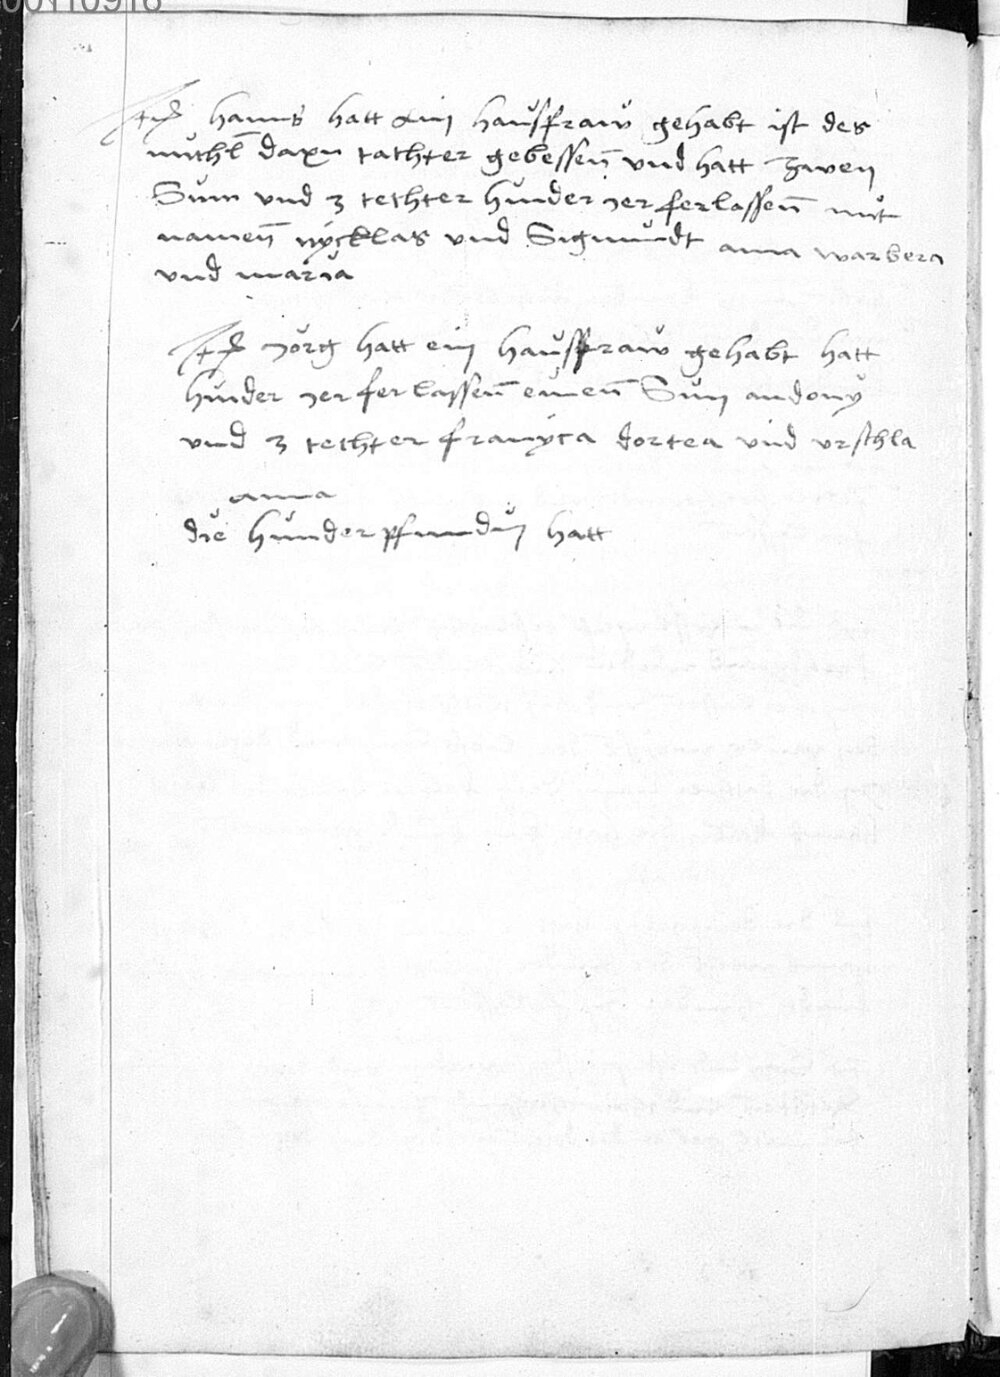 00110918
Itm hanns hatt ain hausfraw gehabt ist des
michl daxn tachter gebessenn vnd hatt zwen
Sun vnd 3 techter hinder jer ferlassenn mit
namenn nycklas vnd Sigmundt anna warbera
vnd maria
Itm jorg hatt ein hausfraw gehabt hatt
hinder jer ferlassenn einenn Sun andony
vnd 3 techter franyca dortea vnd vrschla
anna
die hinder pfundin hatt